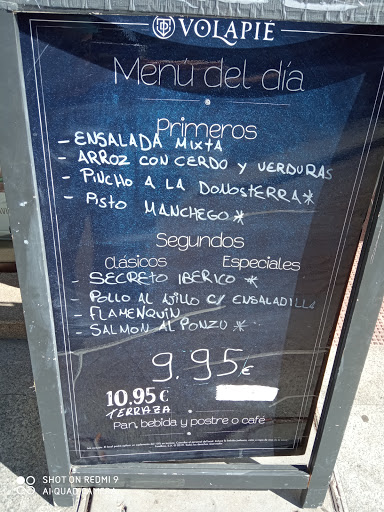 VOLAPIÉ
Menú del día
Primeros
- ENSALADA MIXTA
- ARROZ CON CERDO Y VERDURAS
- PINCHO A LA DONOSTERRA*
- PISTO MANCHEGO*
Segundos
Clásicos Especiales
- SECRETO IBERICO*
- POLLO AL AJILLO C/ ENSALADILLA
- FLAMENQUÍN
- SALMON AL PONZU*
9.95€
10.95€
TERRAZA
Pan, bebida y postre o café
SHOT ON REDMI 9
AI QUAD CAMERA